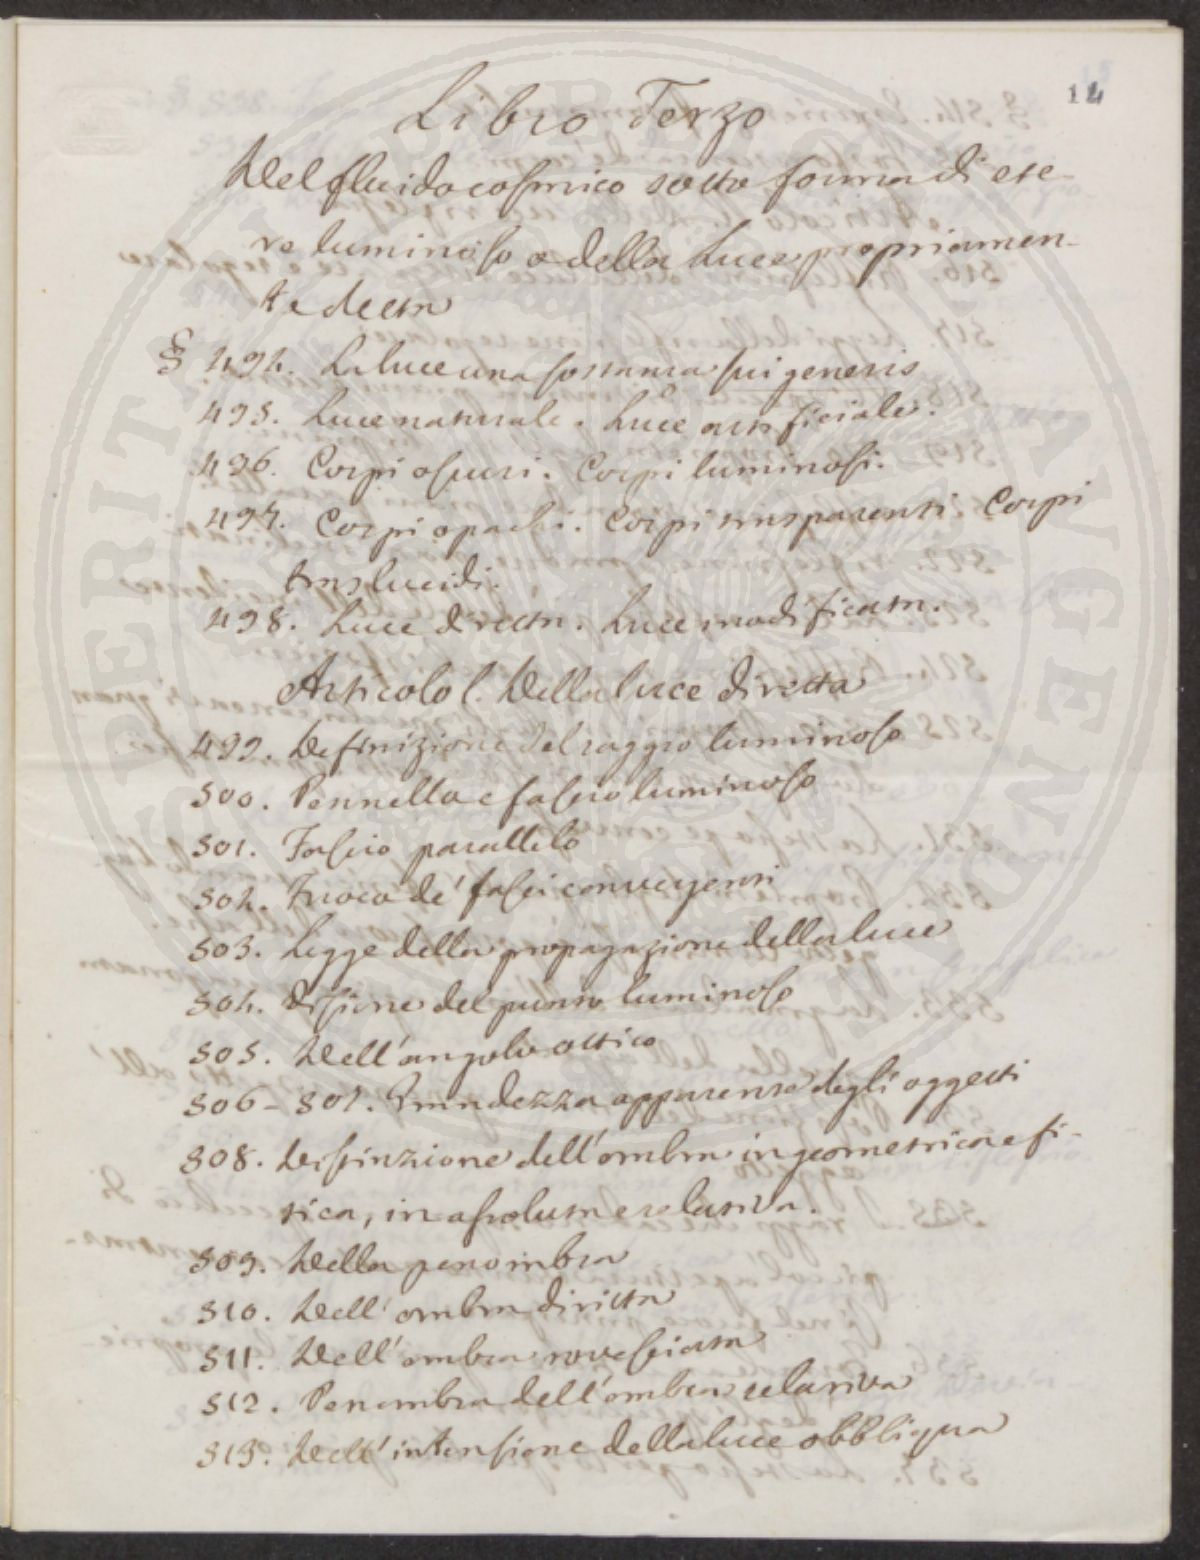 14
Libro Terzo
Del fluido cosmico sotto forma di ete-
re luminoso o della Luce propriamen-
te detta
§ 494. La luce una sostanza sui generis
495. Luce naturale. Luce artificiale.
496. Corpi oscuri. Corpi luminosi.
497. Corpi opachi. Corpi trasparenti. Corpi
traslucidi.
498. Luce diretta. Luce modificata.
Articolo I. Della luce diretta
499. Definizione del raggio luminoso
500. Pennello e fascio luminoso
501. Fascio parallelo
502. Fuoco de' fasci convergenti
503. Legge della propagazione della luce
504. Visione del punto luminoso
505. Dell'angolo ottico
506-507. Grandezza apparente degli oggetti
508. Distinzione dell'ombra in geometrica e fi-
sica, in assoluta e relativa.
509. Della penombra
510. Dell'ombra diritta
511. Dell'ombra rovesciata
512. Penombra dell'ombra relativa
513. Dell'intensione della luce obbliqua
VERITATEM